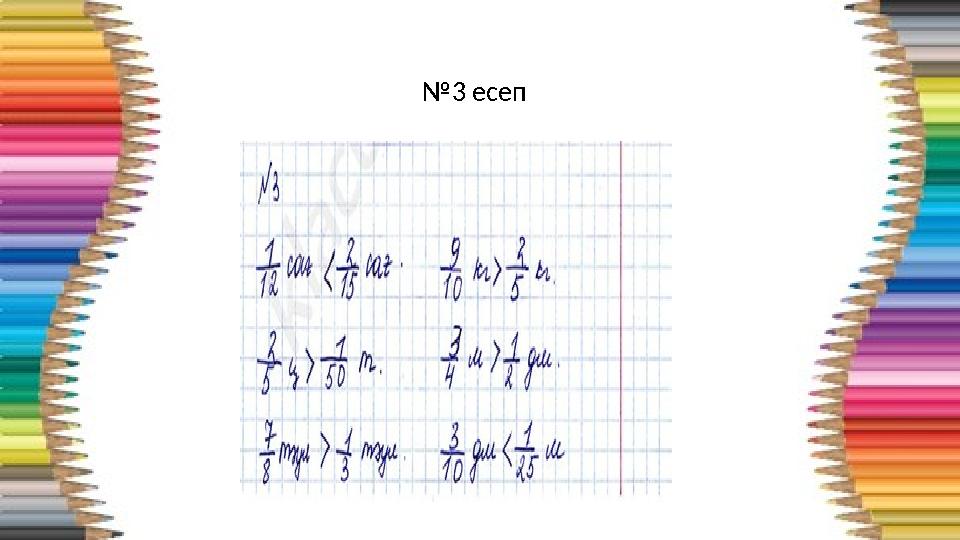 №3 есеп
№3
1/12 сағ < 2/15 сағ. 9/10 кг > 2/5 кг.
2/5 ц > 1/50 т. 3/4 м > 1/2 дм.
7/8 тәул > 1/3 тәул. 3/10 дм < 1/25 м